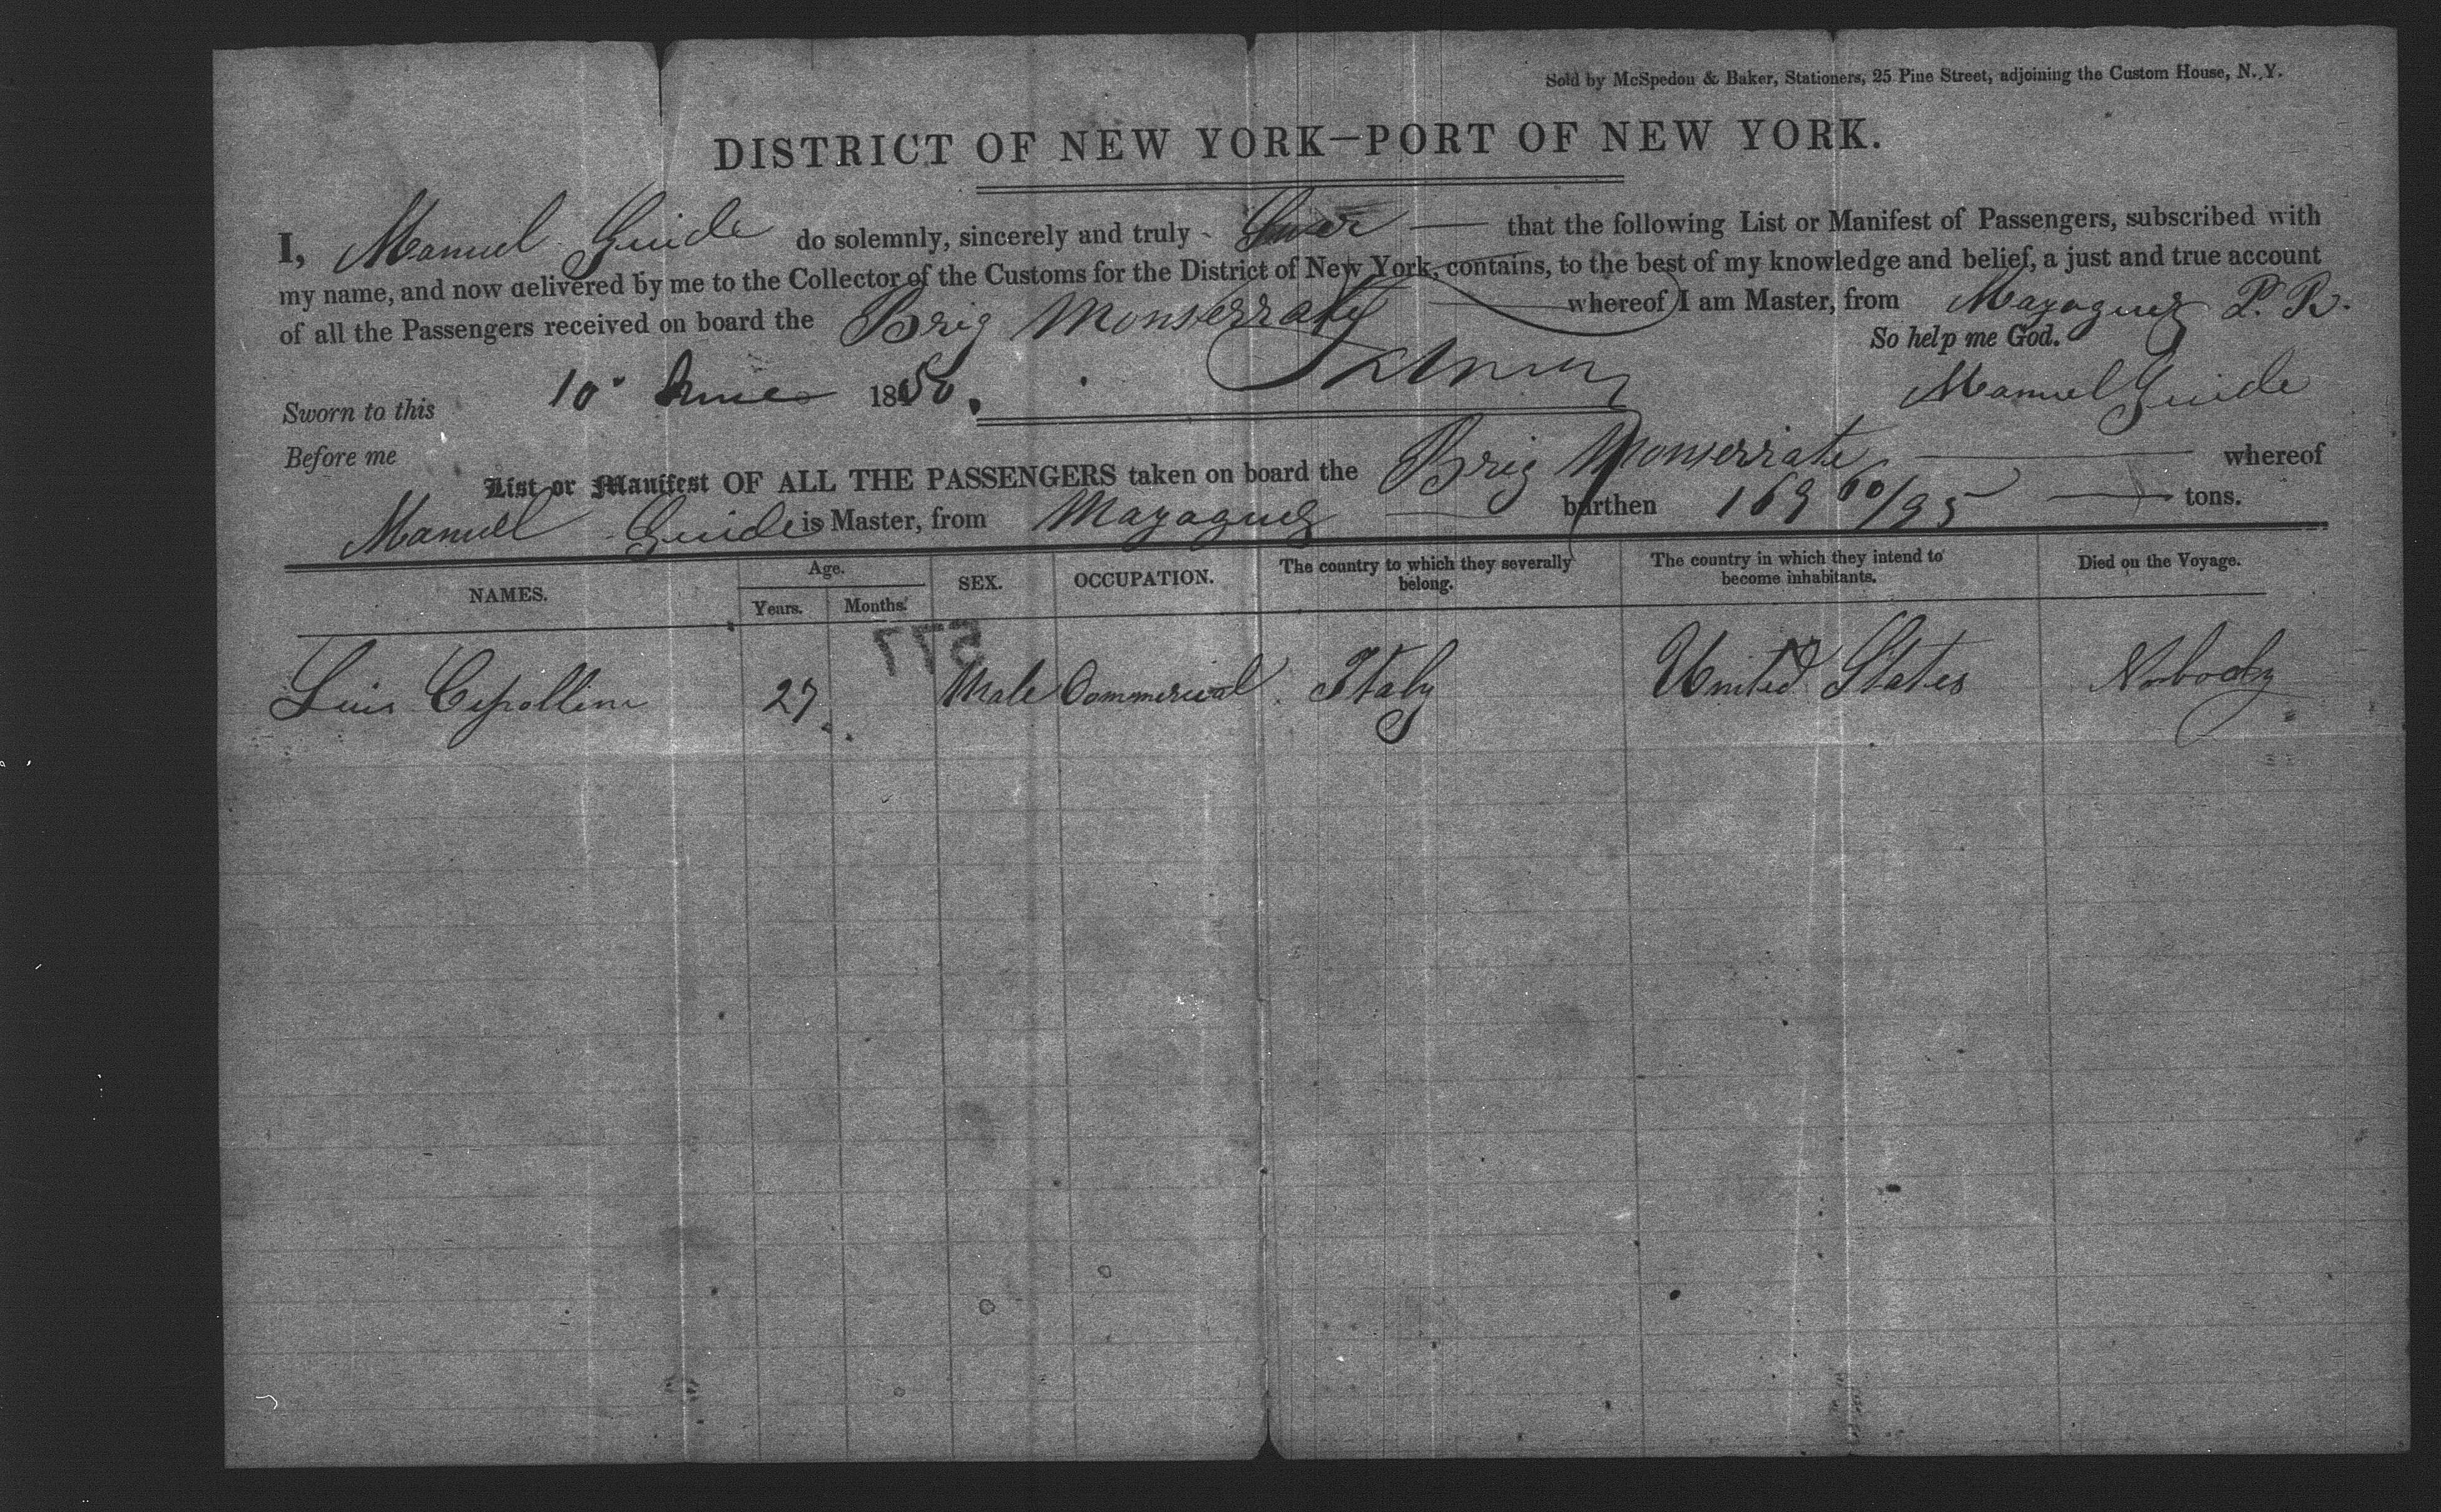 Sold by McSpedon & Baker, Stationers, 25 Pine Street, adjoining the Custom House, N. Y.
DISTRICT OF NEW YORK—PORT OF NEW YORK.
I, Manuel Guide do solemnly, sincerely and truly Swear that the following List or Manifest of Passengers, subscribed with
my name, and now delivered by me to the Collector of the Customs for the District of New York, contains, to the best of my knowledge and belief, a just and true account
of all the Passengers received on board the Brig Monserrate whereof I am Master, from Mayaguez P. R.
So help me God.
Sworn to this 10 June 1850. Manuel Guide
Before me
List or Manifest OF ALL THE PASSENGERS taken on board the Brig Monserrate whereof
Manuel Guide is Master, from Mayaguez burthen 169 60/95 tons.
NAMES. Age. Years. Months. SEX. OCCUPATION. The country to which they severally belong. The country in which they intend to become inhabitants. Died on the Voyage.
577
Luis Cipollini 27 Male Commercial Italy United States Nobody